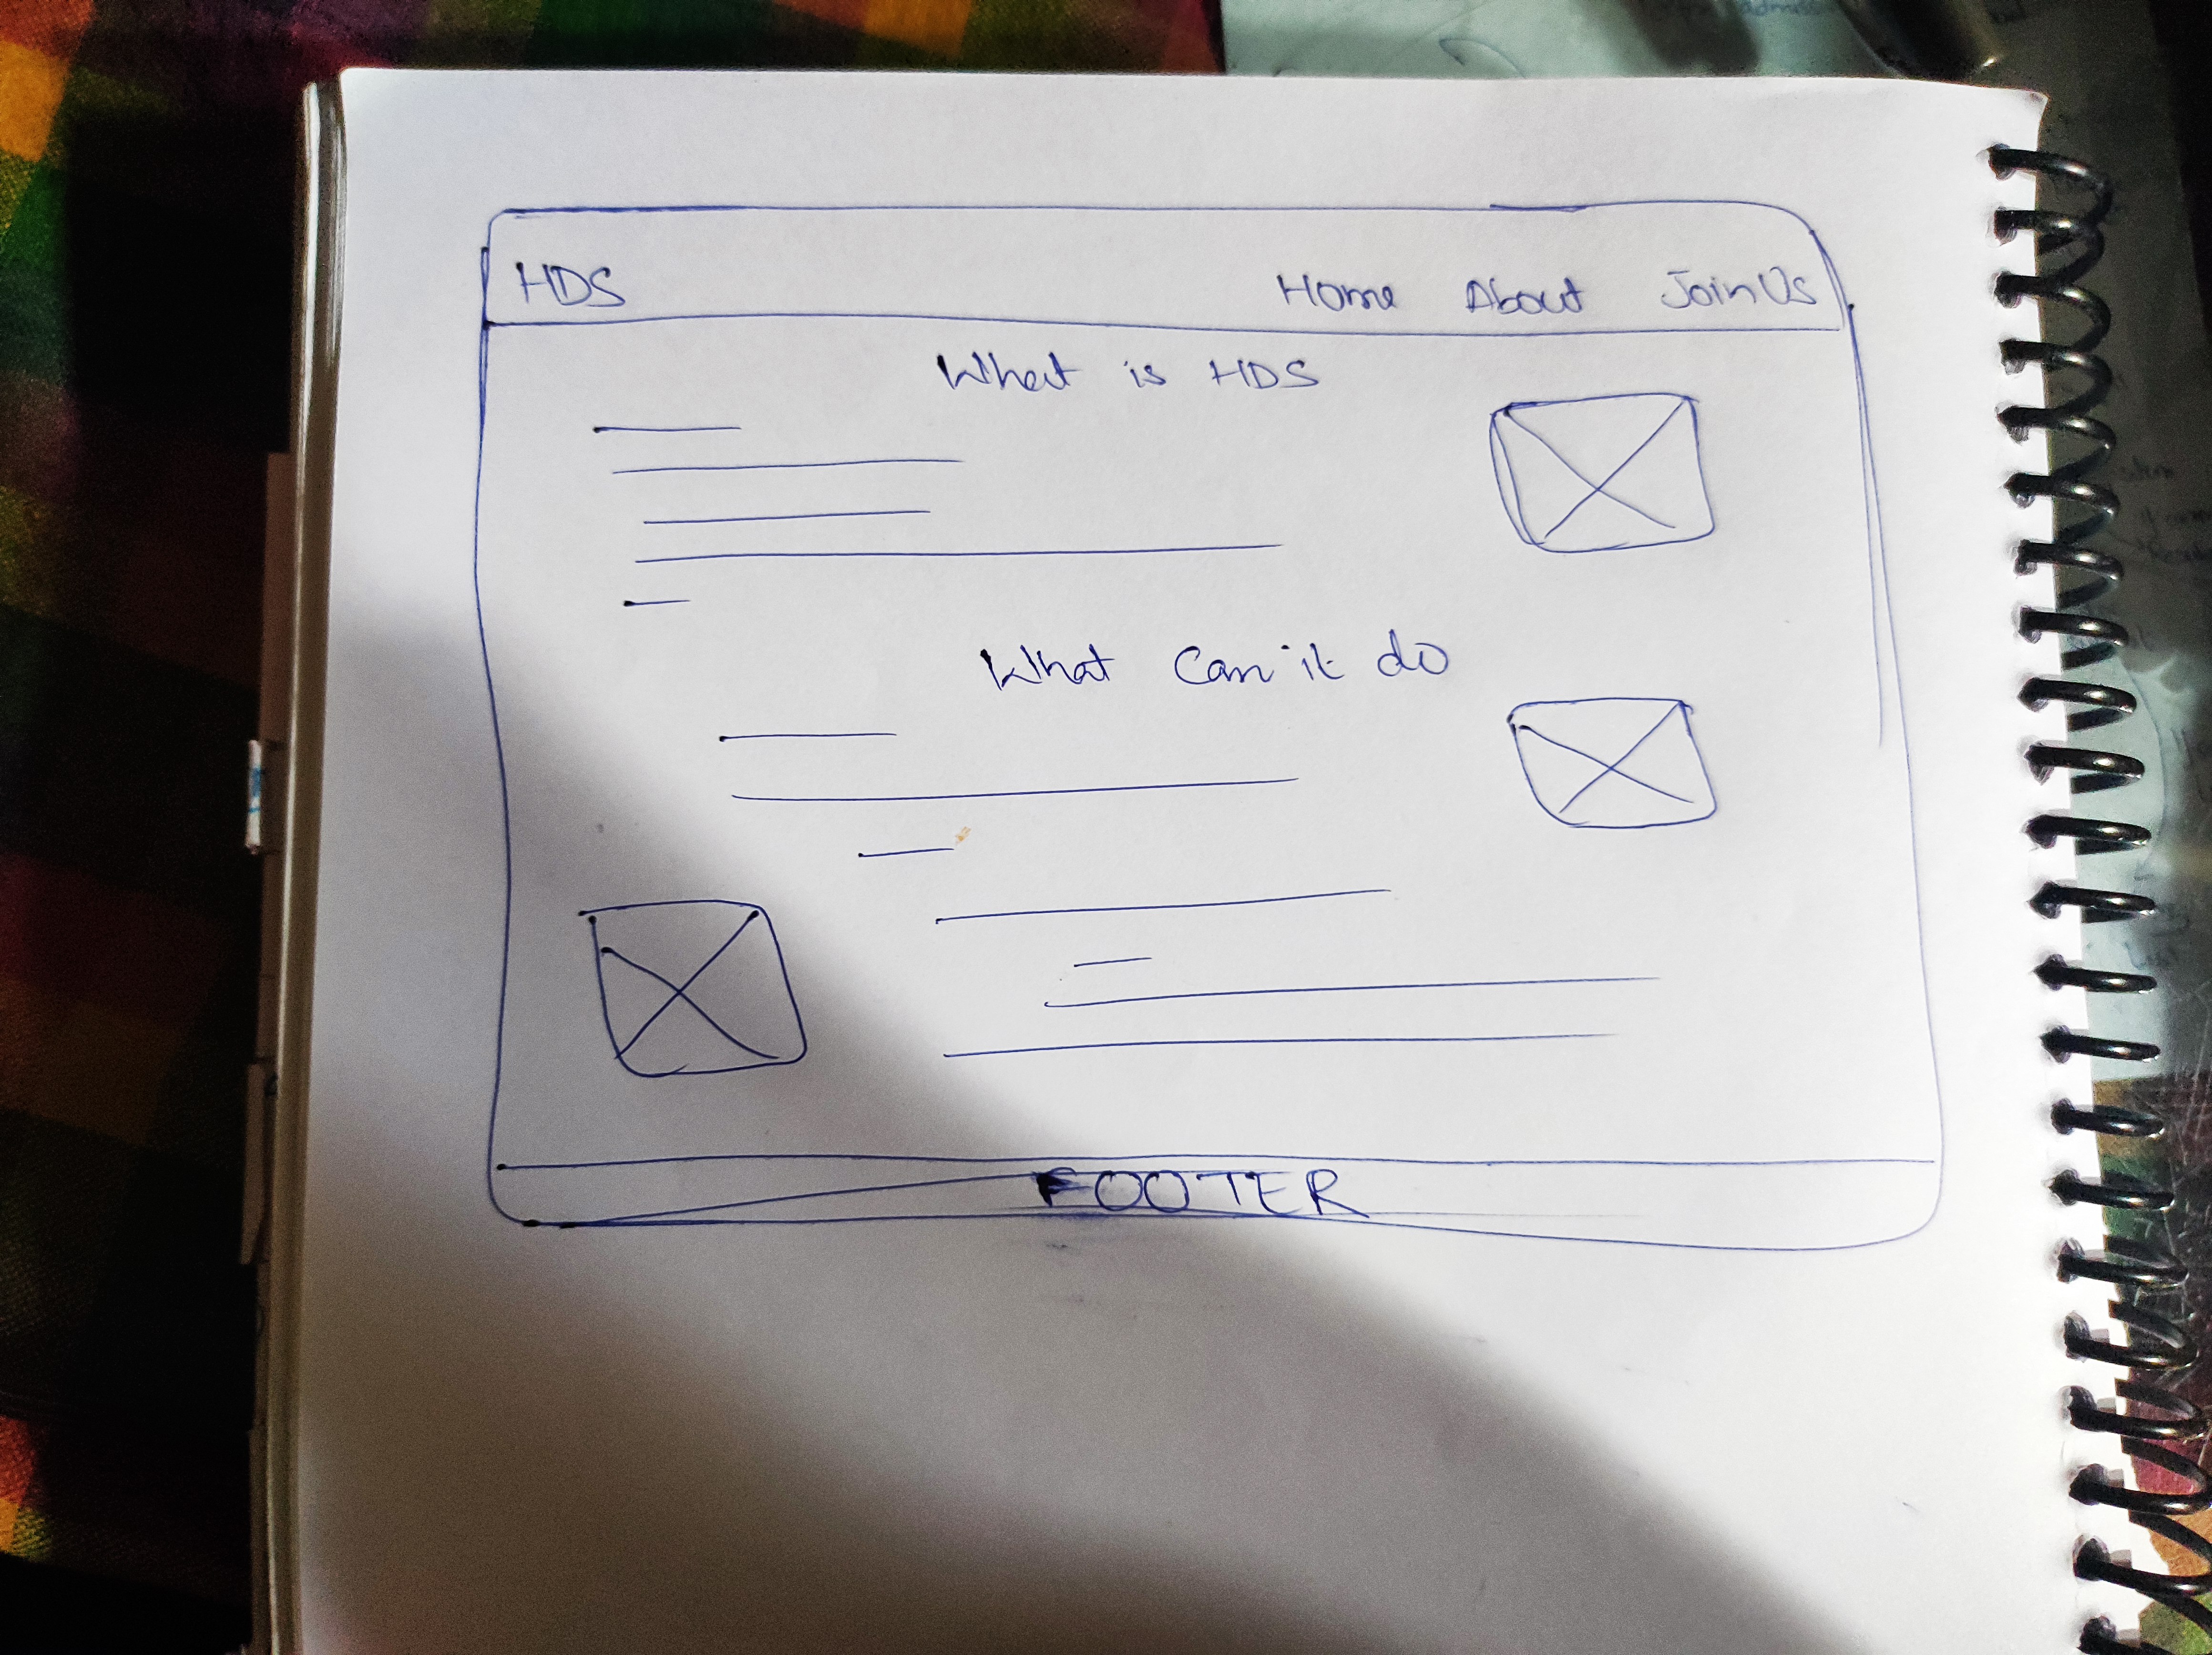 HDS Home About Join Us
What is HDS
What Can it do
FOOTER